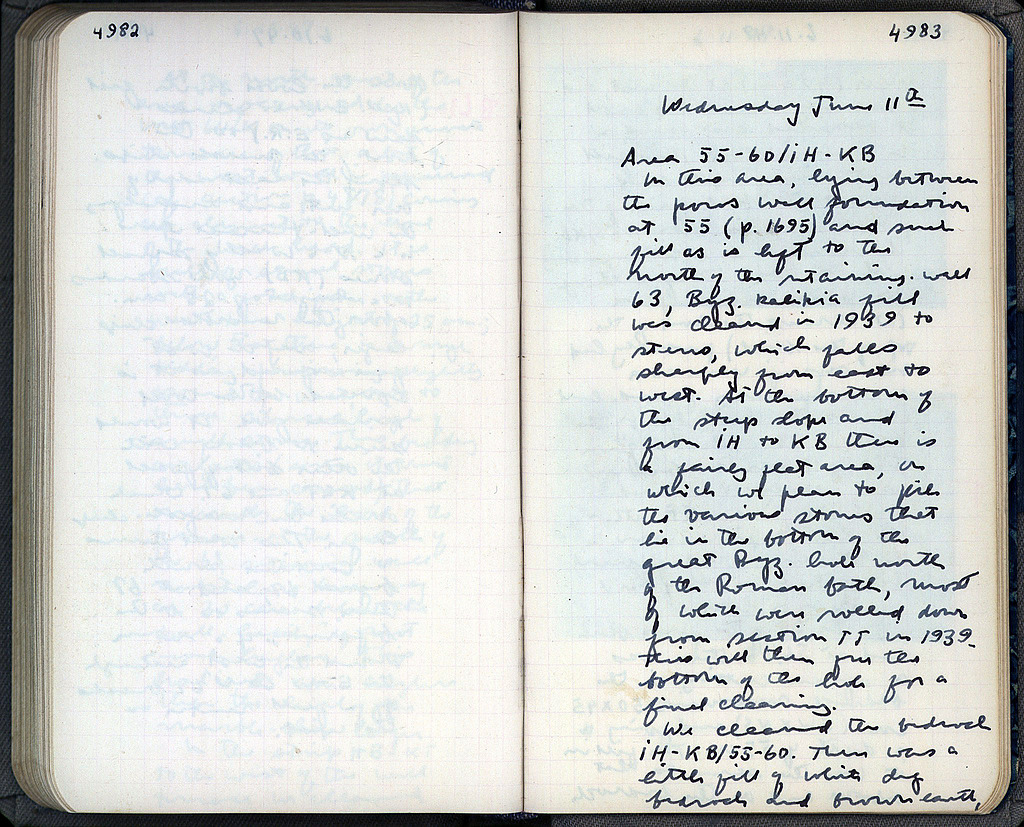 4982
4983
Wednesday June 11th
Area 55-60/ΙΗ-ΚΒ
In this area, lying between
the poros wall foundation
at 55 (p. 1695) and such
fill as is left to the
north of the retaining wall
63, Byz. kalikia fill
was cleaned in 1939 to
stereo, which falls
sharply from east to
west. At the bottom of
the steep slope and
from ΙΗ to ΚΒ there is
a fairly flat area, on
which we plan to pile
the various stones that
lie in the bottom of the
great Byz. hole north
of the Roman bath, most
of which were rolled down
from section ΠΠ in 1939.
This will then free the
bottom of the hole for a
final cleaning.
We cleaned the bedrock
ΙΗ-ΚΒ/55-60. There was a
little fill of white dug
bedrock and brown earth,